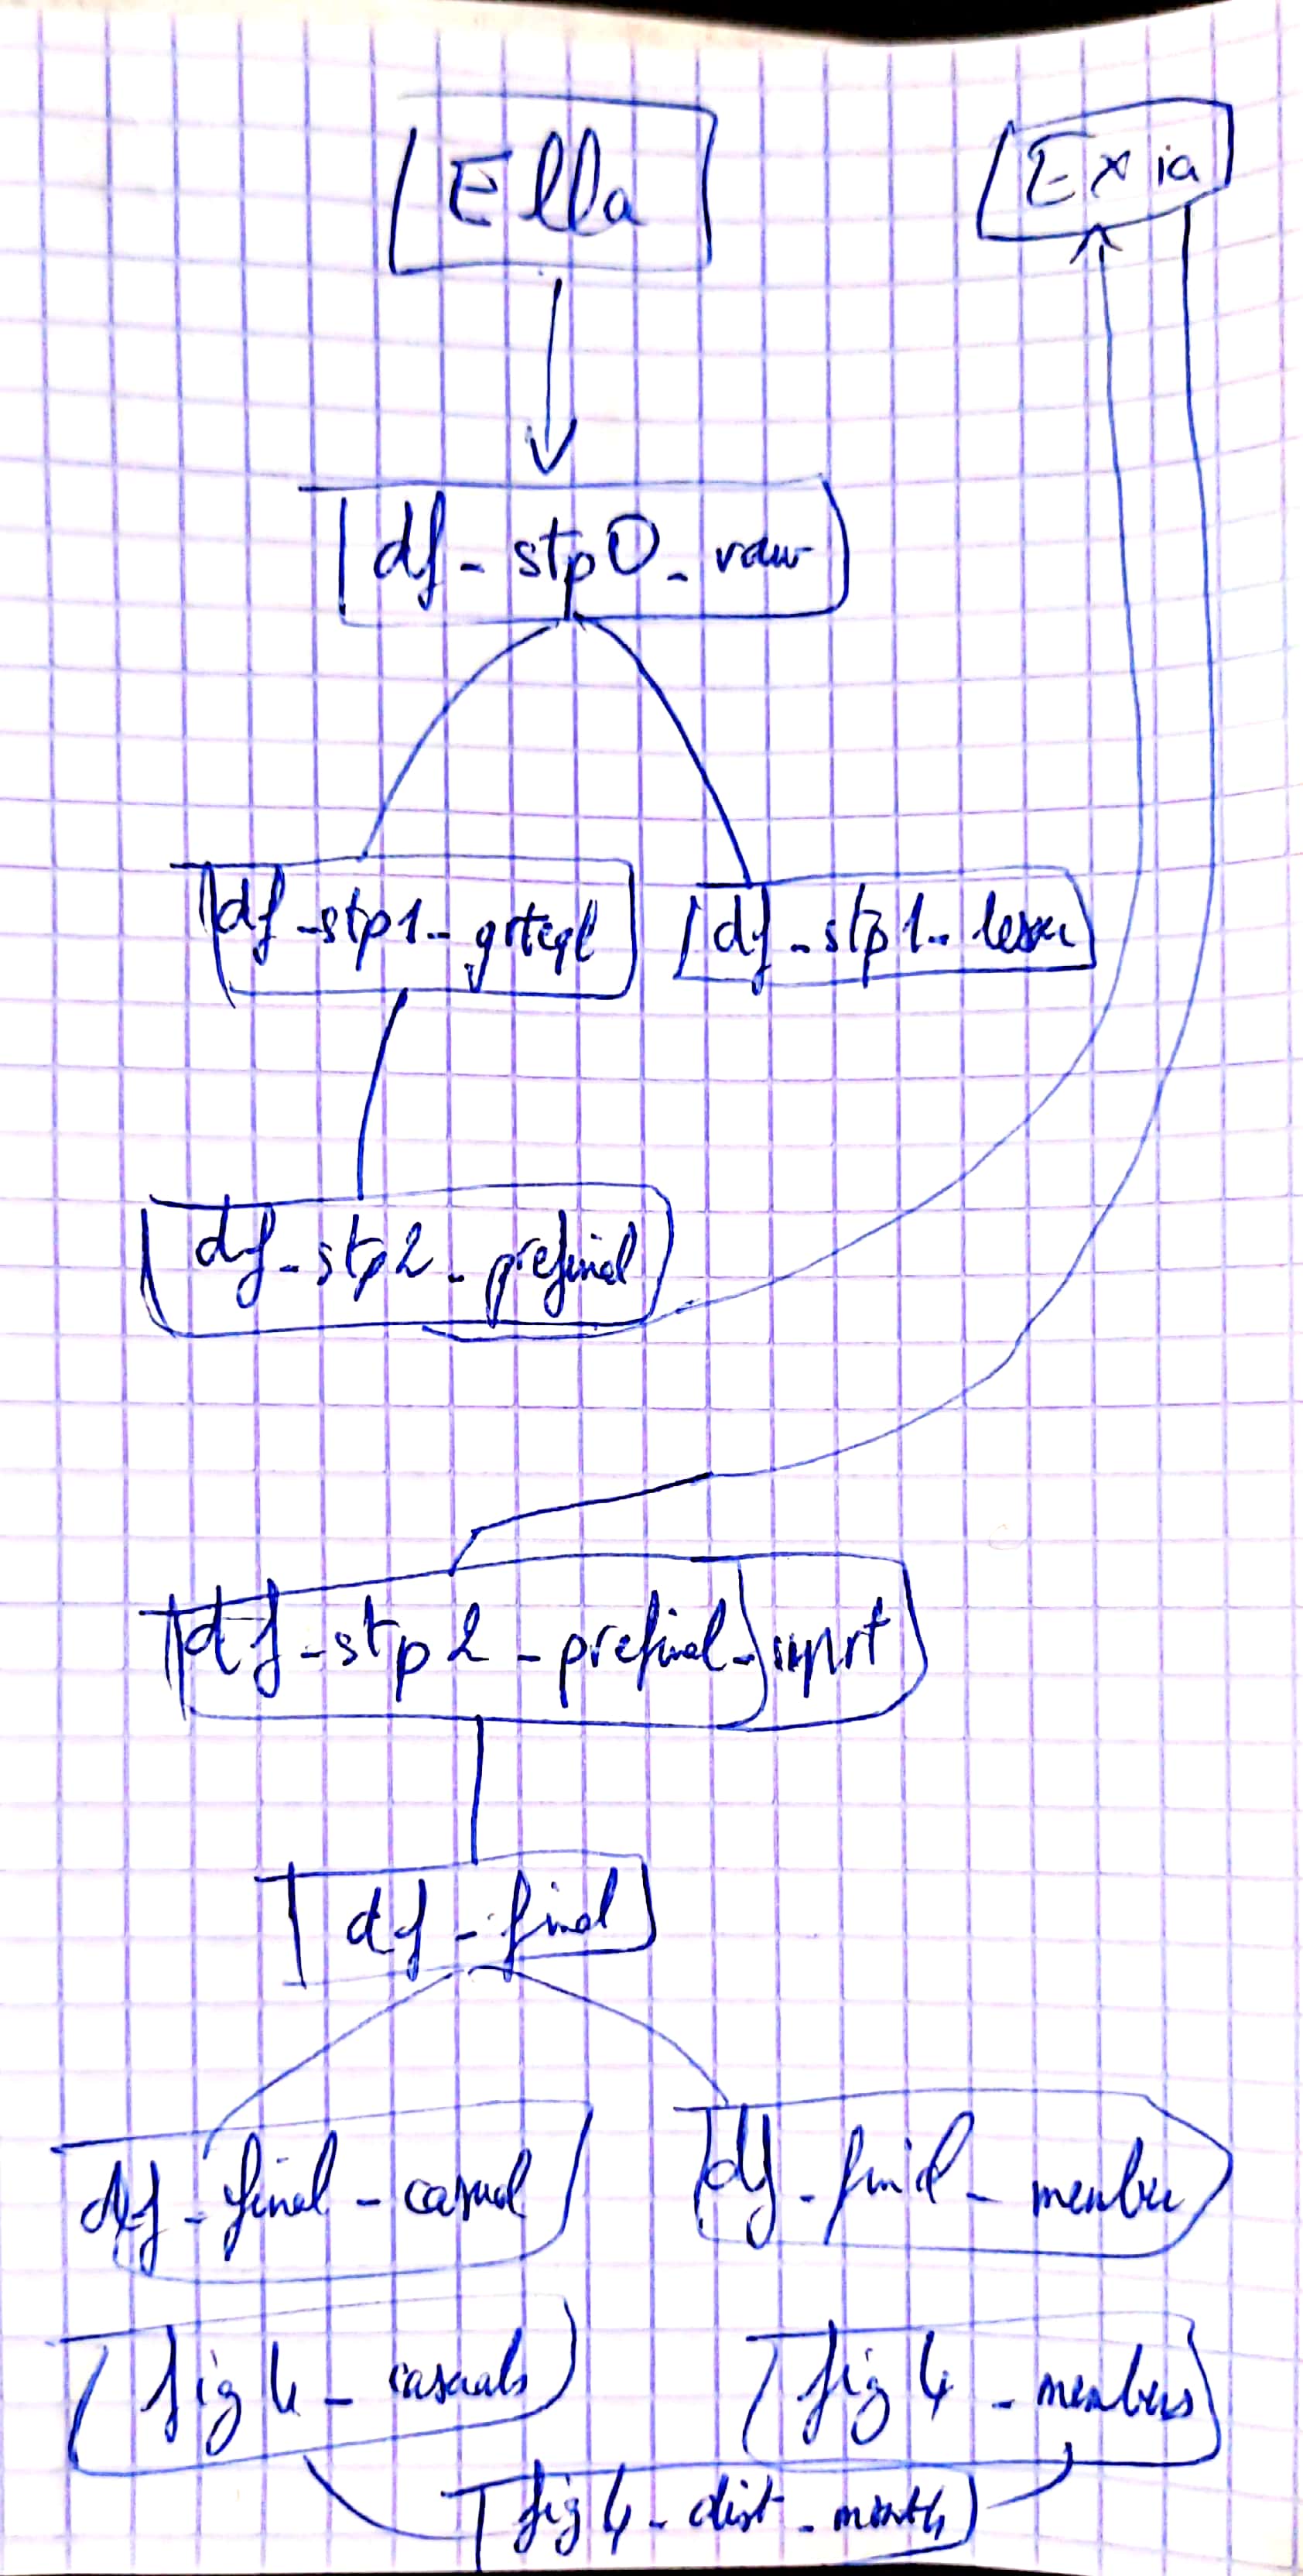 Ella
Exia
df_stp0_raw
df_stp1_grteql
df_stp1_lesser
df_stp2_prefinal
df_stp2_prefinal_imprt
df_final
df_final_casual
df_final_member
fig4_casuals
fig4_members
fig4_dist_month